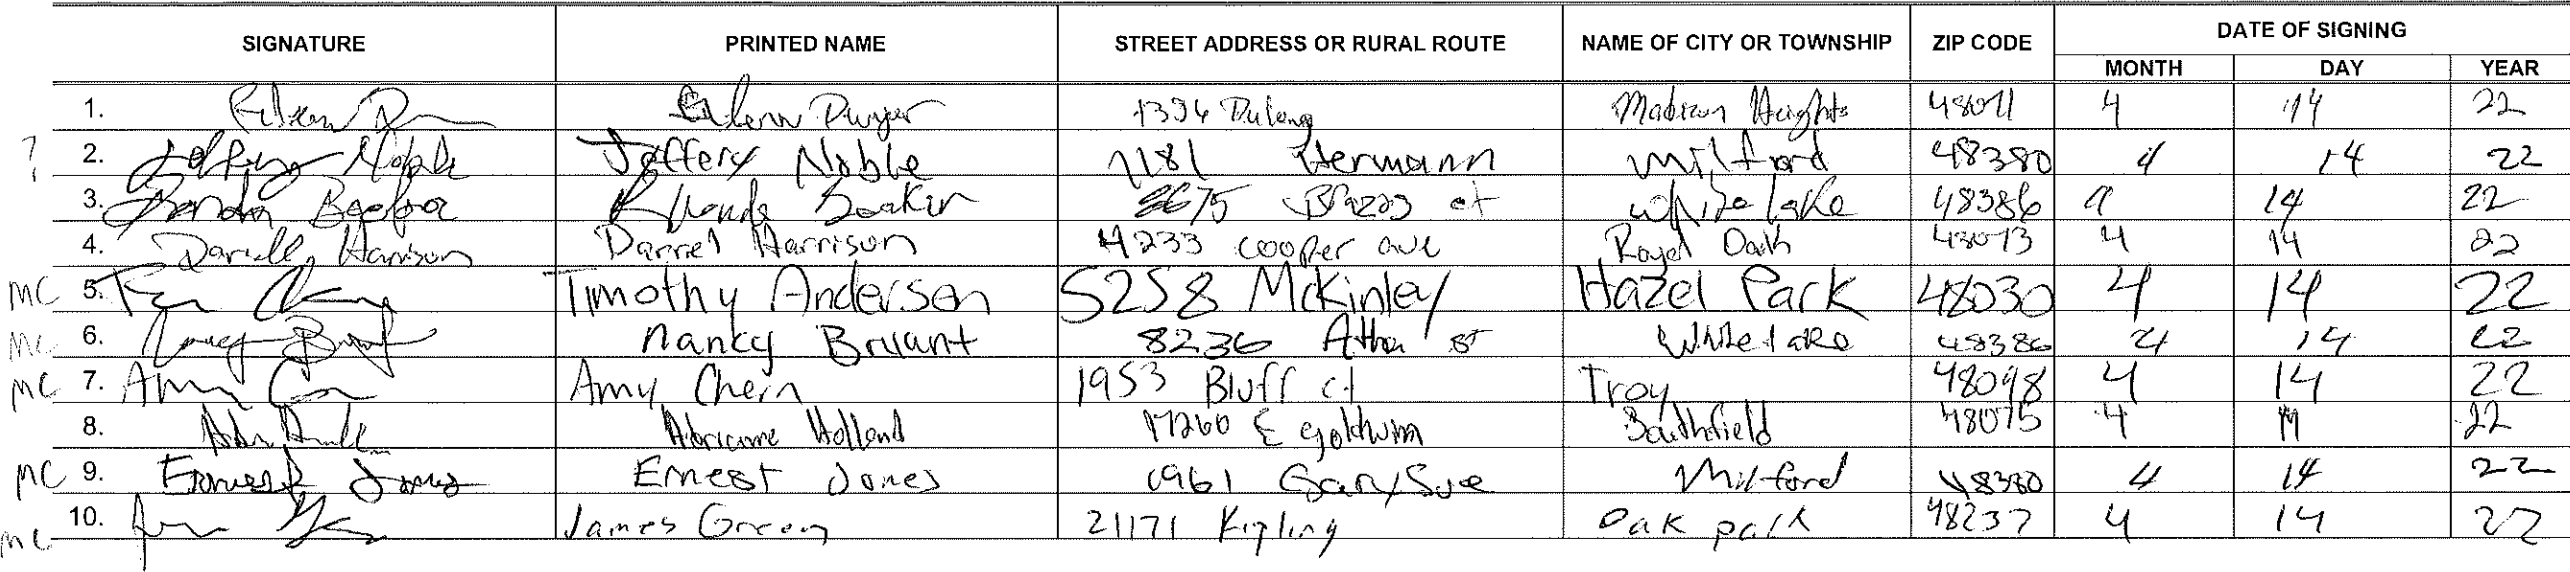 SIGNATURE PRINTED NAME STREET ADDRESS OR RURAL ROUTE NAME OF CITY OR TOWNSHIP ZIP CODE DATE OF SIGNING
MONTH DAY YEAR
1. Dwyer Madison Heights 48071 4 14 22
? 2. Jeffery Noble Jeffery Noble Hermann Milford 48380 4 14 22
3. Rhonda White lake 48386 14 22
4. Darrell Harrison Darrel Harrison 4233 cooper ave Royal Oak 48073 4 14 22
MC 5. Timothy Anderson 5258 McKinley Hazel Park 48030 4 14 22
MC 6. Nancy Bryant 8236 st White lake 48386 4 14 22
MC 7. Amy Amy Chern 1953 Bluff ct Troy 48098 4 14 22
8. Holland 17260 E Southfield 48075 4 14 22
MC 9. Ernest Jones Ernest Jones GarySue Milford 48380 4 14 22
MC 10. James Green 21171 Kipling Oak park 48237 4 14 22